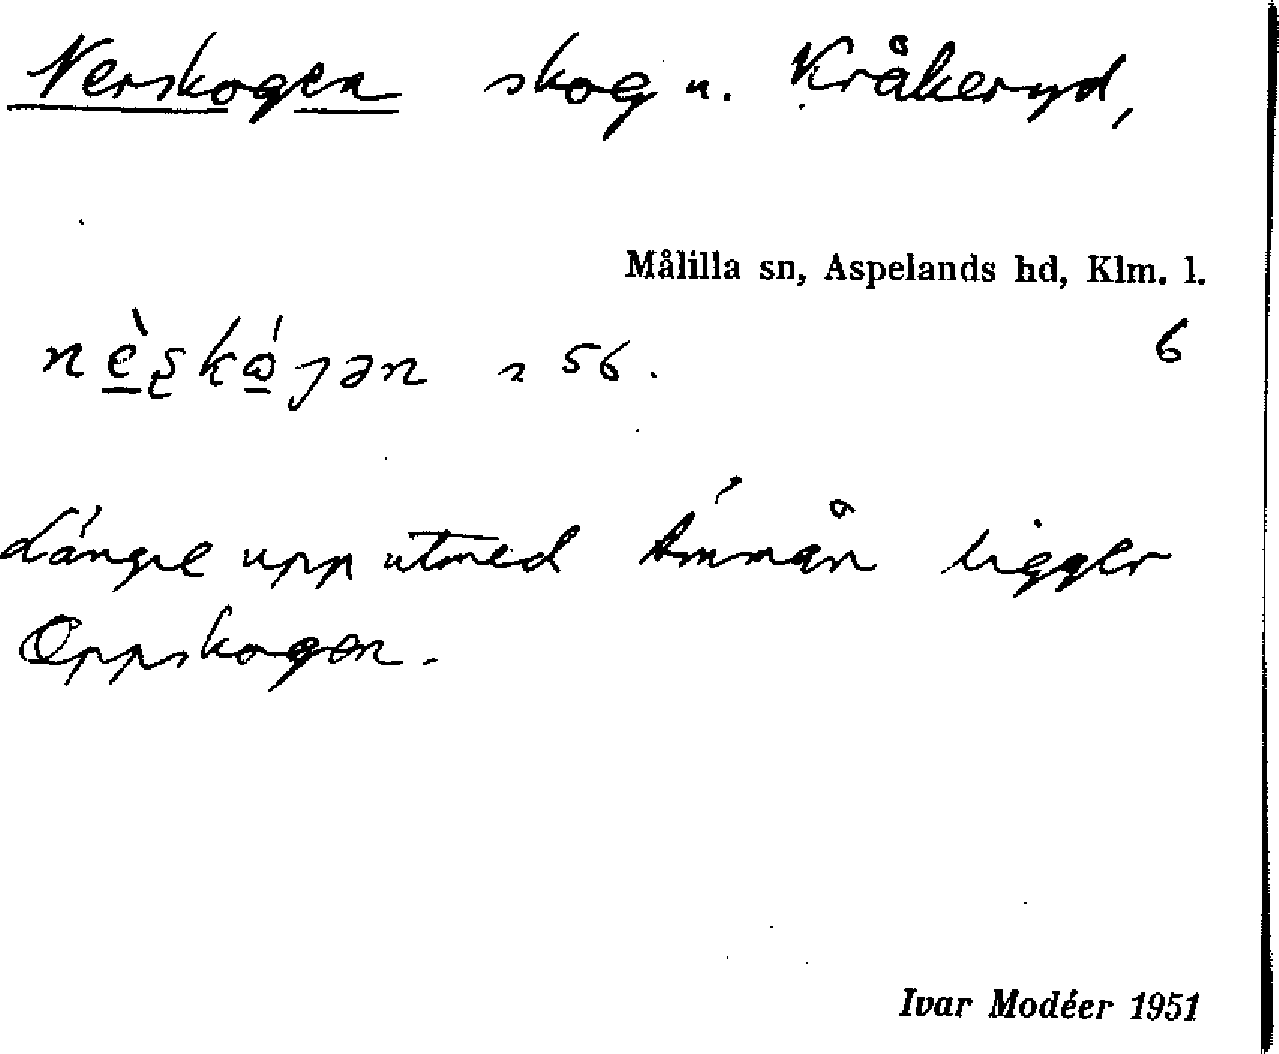 Nerskogen skog u. Kråkeryd,
Målilla sn, Aspelands hd, Klm. l.
56. 6
Längre upp utmed Emmån ligger
Oppskogen.
Ivar Modéer 1951